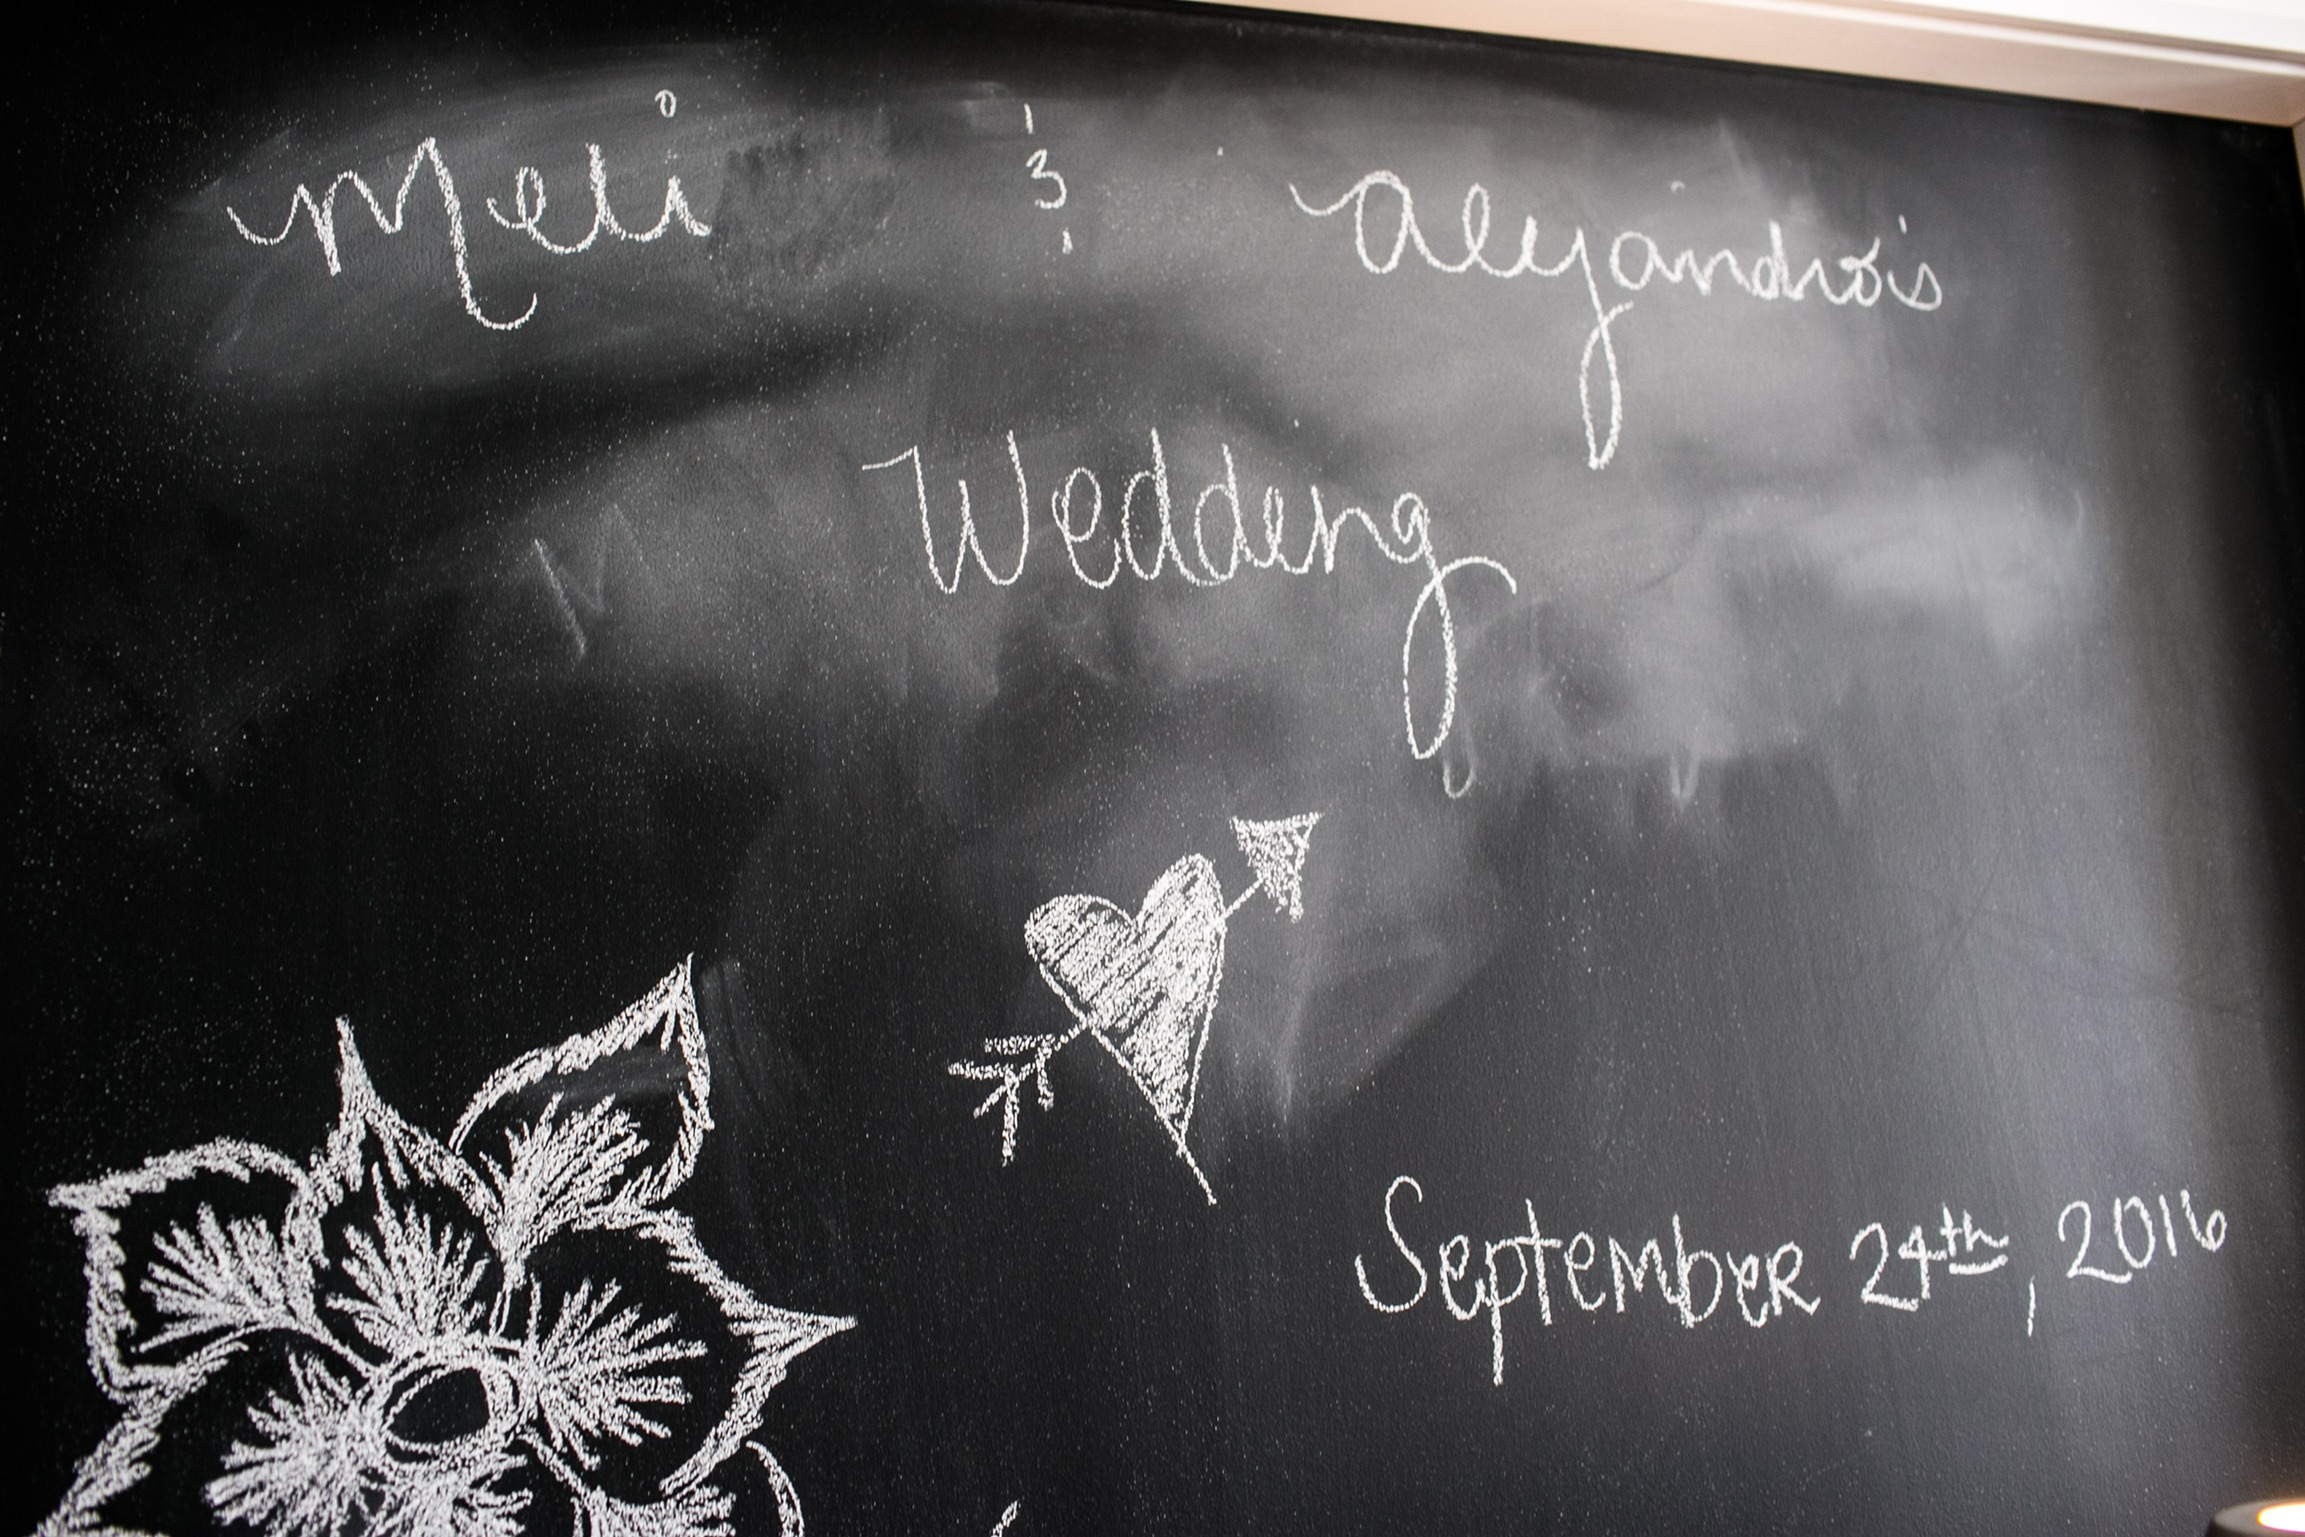 Meli & Alejandro's
Wedding
September 24th, 2016